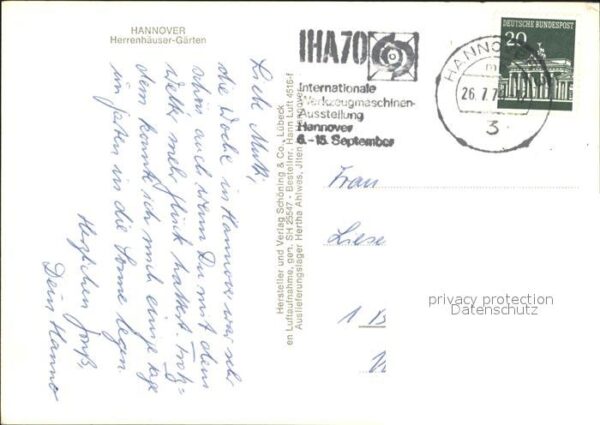 HANNOVER
Herrenhäuser-Gärten
Liebe Mutti,
die Woche in Hannover war sehr
schön auch wenn Du mit dem
Wetter mehr Glück hattest. Trotz-
dem konnte ich mich einige Tage
im Garten in die Sonne legen.
Herzlichen Gruß,
Dein Hanno
Hersteller und Verlag Schöning & Co., Lübeck
en Luftaufnahme, gen. SH 25547 - Bestellnr. Hann Luft 4516-f
Auslieferungslager Hertha Ahlwes,
IHA70
Internationale
Werkzeugmaschinen-
Ausstellung
Hannover
6.-15. September
HANNOVER
26. 7. 7
3
DEUTSCHE BUNDESPOST
20
Frau
Liese
1 B
privacy protection
Datenschutz